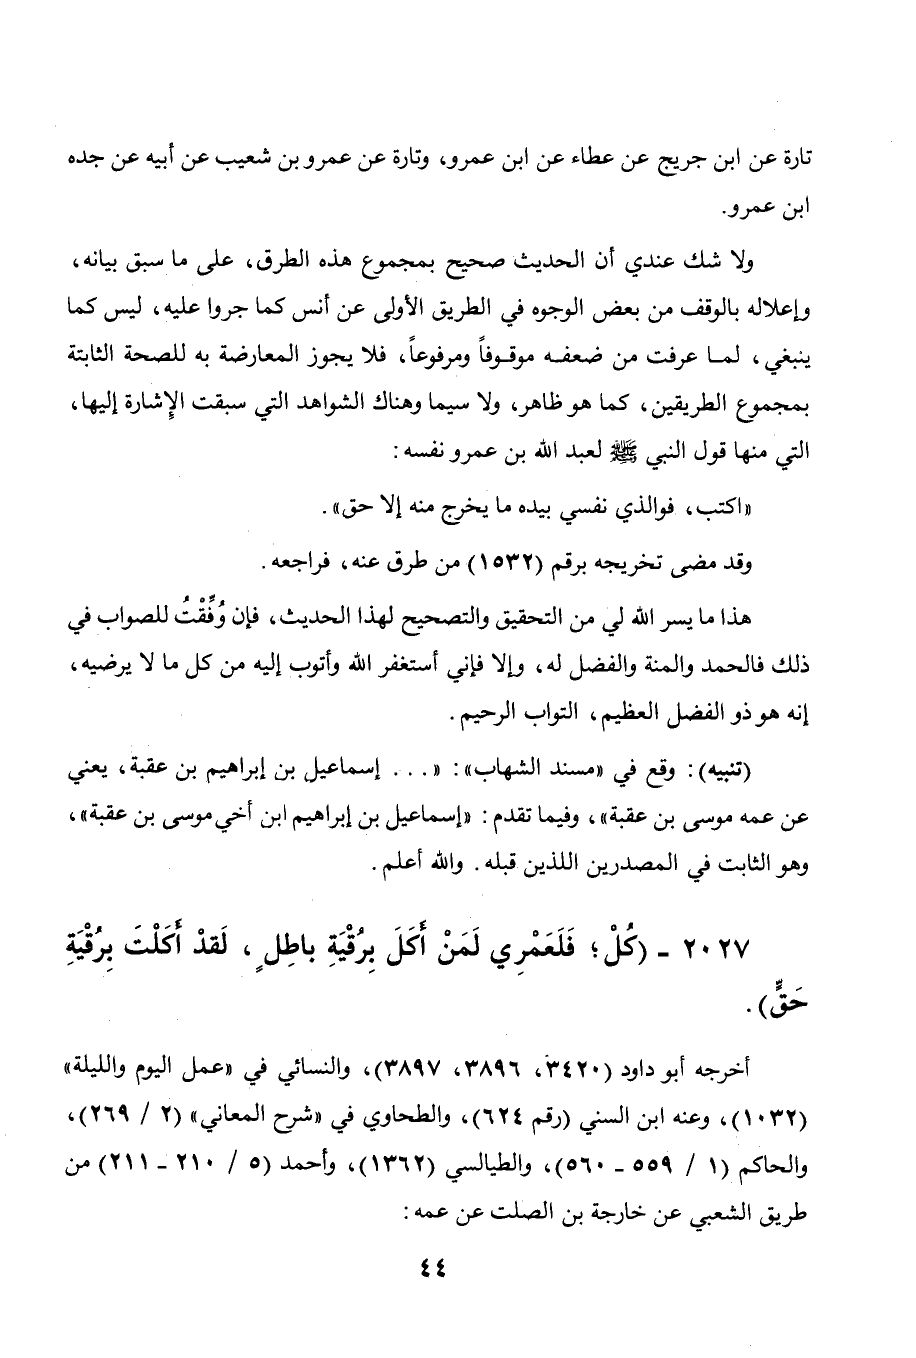 تارة عن ابن جريج عن عطاء عن ابن عمرو، وتارة عن عمرو بن شعيب عن أبيه عن جده
ابن عمرو.
ولا شك عندي أن الحديث صحيح بمجموع هذه الطرق، على ما سبق بيانه،
وإعلاله بالوقف من بعض الوجوه في الطريق الأولى عن أنس كما جروا عليه، ليس كما
ينبغي، لما عرفت من ضعفه موقوفاً ومرفوعاً، فلا يجوز المعارضة به للصحة الثابتة
بمجموع الطريقين، كما هو ظاهر، ولا سيما وهناك الشواهد التي سبقت الإشارة إليها،
التي منها قول النبي ﷺ لعبد الله بن عمرو نفسه:
«اكتب، فوالذي نفسي بيده ما يخرج منه إلا حق».
وقد مضى تخريجه برقم (١٥٣٢) من طرق عنه، فراجعه.
هذا ما يسر الله لي من التحقيق والتصحيح لهذا الحديث، فإن وُفِّقْتُ للصواب في
ذلك فالحمد والمنة والفضل له، وإلا فإني أستغفر الله وأتوب إليه من كل ما لا يرضيه،
إنه هو ذو الفضل العظيم، التواب الرحيم.
(تنبيه): وقع في «مسند الشهاب»: «... إسماعيل بن إبراهيم بن عقبة، يعني
عن عمه موسى بن عقبة»، وفيما تقدم: «إسماعيل بن إبراهيم ابن أخي موسى بن عقبة»،
وهو الثابت في المصدرين اللذين قبله. والله أعلم.
٢٠٢٧ - (كُلْ؛ فَلَعَمْرِي لَمَنْ أَكَلَ بِرُقْيَةِ باطِلٍ، لَقدْ أَكَلْتَ بِرُقْيَةِ
حَقٍّ).
أخرجه أبو داود (٣٤٢٠، ٣٨٩٦، ٣٨٩٧)، والنسائي في «عمل اليوم والليلة»
(١٠٣٢)، وعنه ابن السني (رقم ٦٢٤)، والطحاوي في «شرح المعاني» (٢ / ٢٦٩)،
والحاكم (١ / ٥٥٩ - ٥٦٠)، والطيالسي (١٣٦٢)، وأحمد (٥ / ٢١٠ - ٢١١) من
طريق الشعبي عن خارجة بن الصلت عن عمه:
٤٤